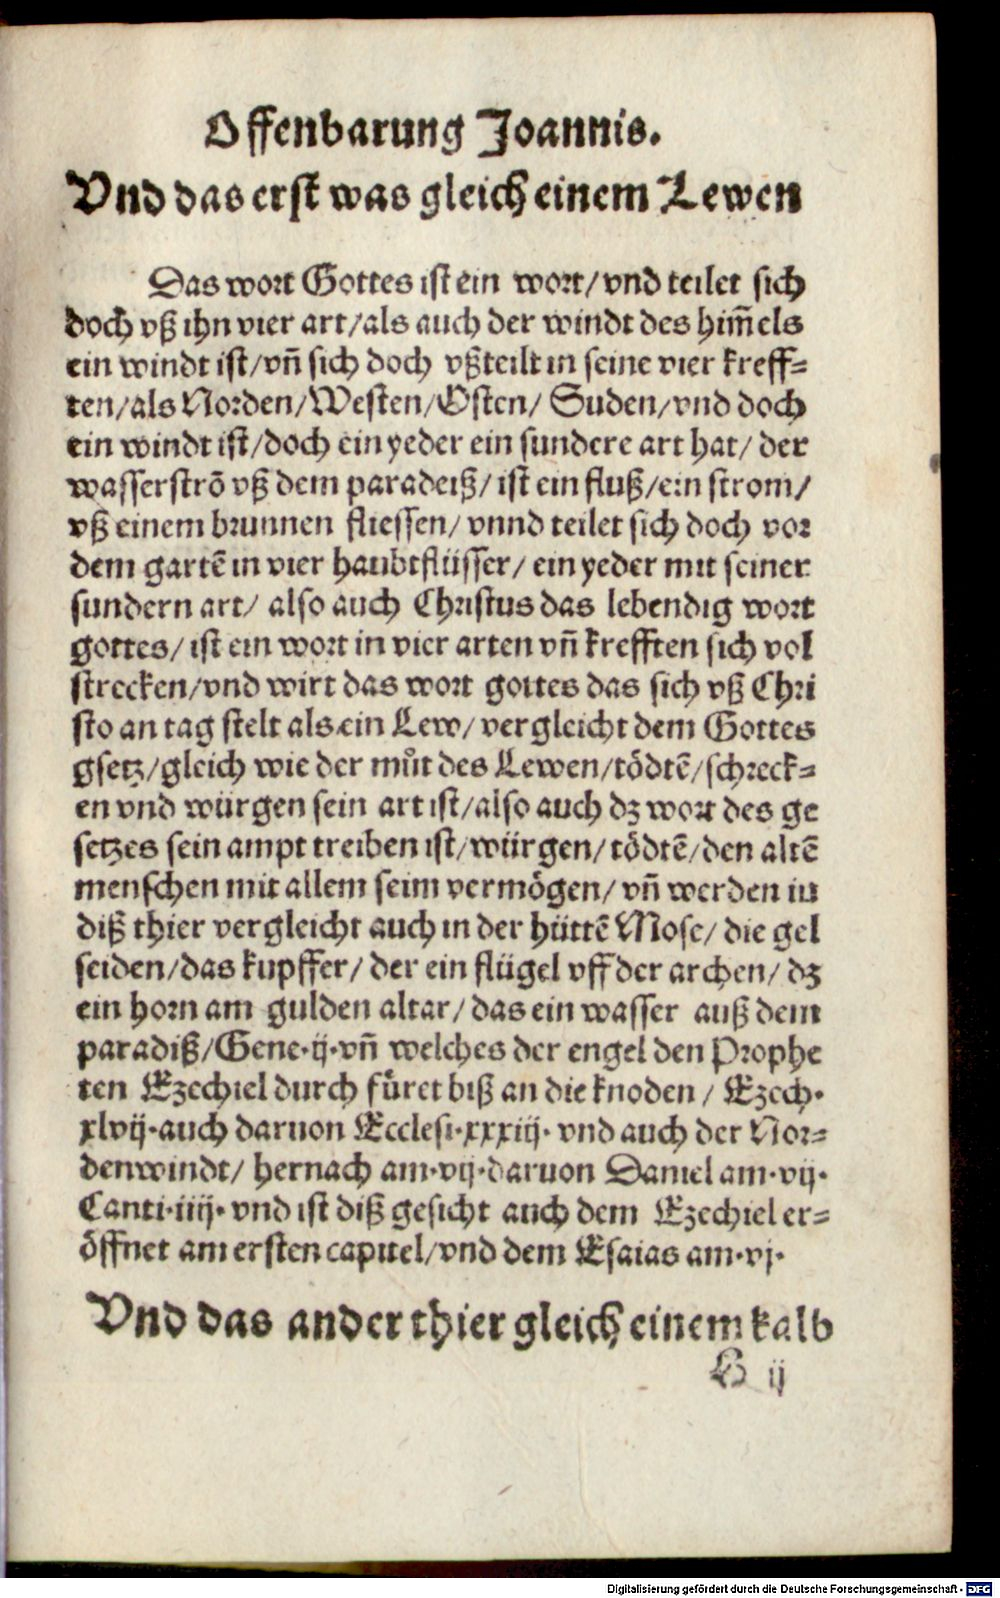 Offenbarung Joannis.
Vnd das erst was gleich einem Lewen
Das wort Gottes ist ein wort/vnd teilet sich
doch vß ihn vier art/als auch der windt des him̃els
ein windt ist/vñ sich doch vßteilt in seine vier kreff⸗
ten/als Norden/Westen/Osten/ Suden/vnd doch
ein windt ist/doch ein yeder ein sundere art hat/ der
wasserströ vß dem paradeiß/ ist ein fluß/ein strom/
vß einem brunnen fliessen/ vnnd teilet sich doch vor
dem gartẽ in vier haubtflüsser/ ein yeder mit seiner
sundern art/ also auch Christus das lebendig wort
gottes/ ist ein wort in vier arten vñ krefften sich vol
strecken/vnd wirt das wort gottes das sich vß Chri
sto an tag stelt als ein Lew/ vergleicht dem Gottes
gsetz/gleich wie der můt des Lewen/tödtẽ/schreck⸗
en vnd würgen sein art ist/also auch dz wort des ge
setzes sein ampt treiben ist/würgen/tödtẽ/den altẽ
menschen mit allem seim vermögen/ vñ werden in
diß thier vergleicht auch in der hüttẽ Mose/ die gel
seiden/das kupffer/ der ein flügel vff der archen/ dz
ein horn am gulden altar/ das ein wasser auß dem
paradiß/Gene·ij·vñ welches der engel den Prophe
ten Ezechiel durch füret biß an die knoden / Ezech·
xlvij·auch daruon Ecclesi·xxxiij· vnd auch der Nor⸗
denwindt/ hernach am·vij·daruon Daniel am·vij·
Canti·iiij· vnd ist diß gesicht auch dem Ezechiel er⸗
öffnet am ersten capitel/vnd dem Esaias am·vj·
Vnd das ander thier gleich einem kalb
B ij
Digitalisierung gefördert durch die Deutsche Forschungsgemeinschaft - DFG